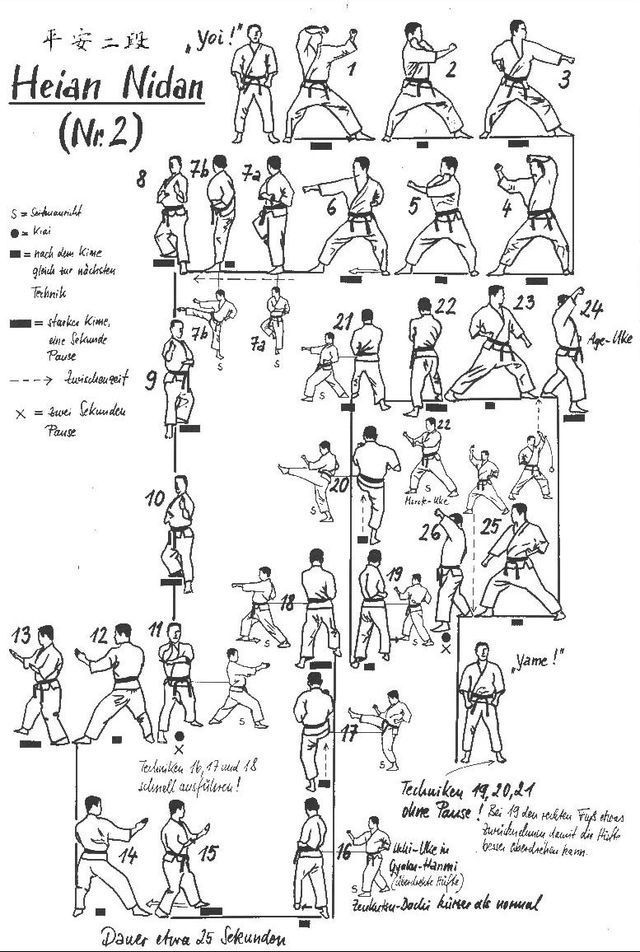 平安二段
„Yoi!"
Heian Nidan
(Nr. 2)
1
2
3
8
7b
7a
6
5
4
S = Seitenansicht
● = Kiai
■ = nach dem Kime
gleich zur nächsten
Technik
= starker Kime,
eine Sekunde
Pause
---> Zwischenzeit
× = zwei Sekunden
Pause
7b
S
7a
S
21
22
23
24
Age-Uke
S
9
20
S
22
S
Morote-Uke
10
26
25
18
S
19
S
×
13
12
11
S
×
„Yame!"
17
S
Techniken 16, 17 und 18
schnell ausführen!
Techniken 19, 20, 21
ohne Pause! Bei 19 den rechten Fuß etwas
zurücknehmen damit die Hüfte
besser überdrehen kann.
14
15
16
S
Uchi-Uke in
Gyaku-Hanmi
(überdrehte Hüfte)
Zenkutsu-Dachi kürzer als normal
Dauer etwa 25 Sekunden